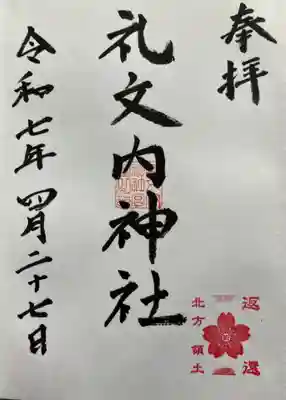 奉拝
礼文内神社
令和七年四月二十七日
返還
北方領土